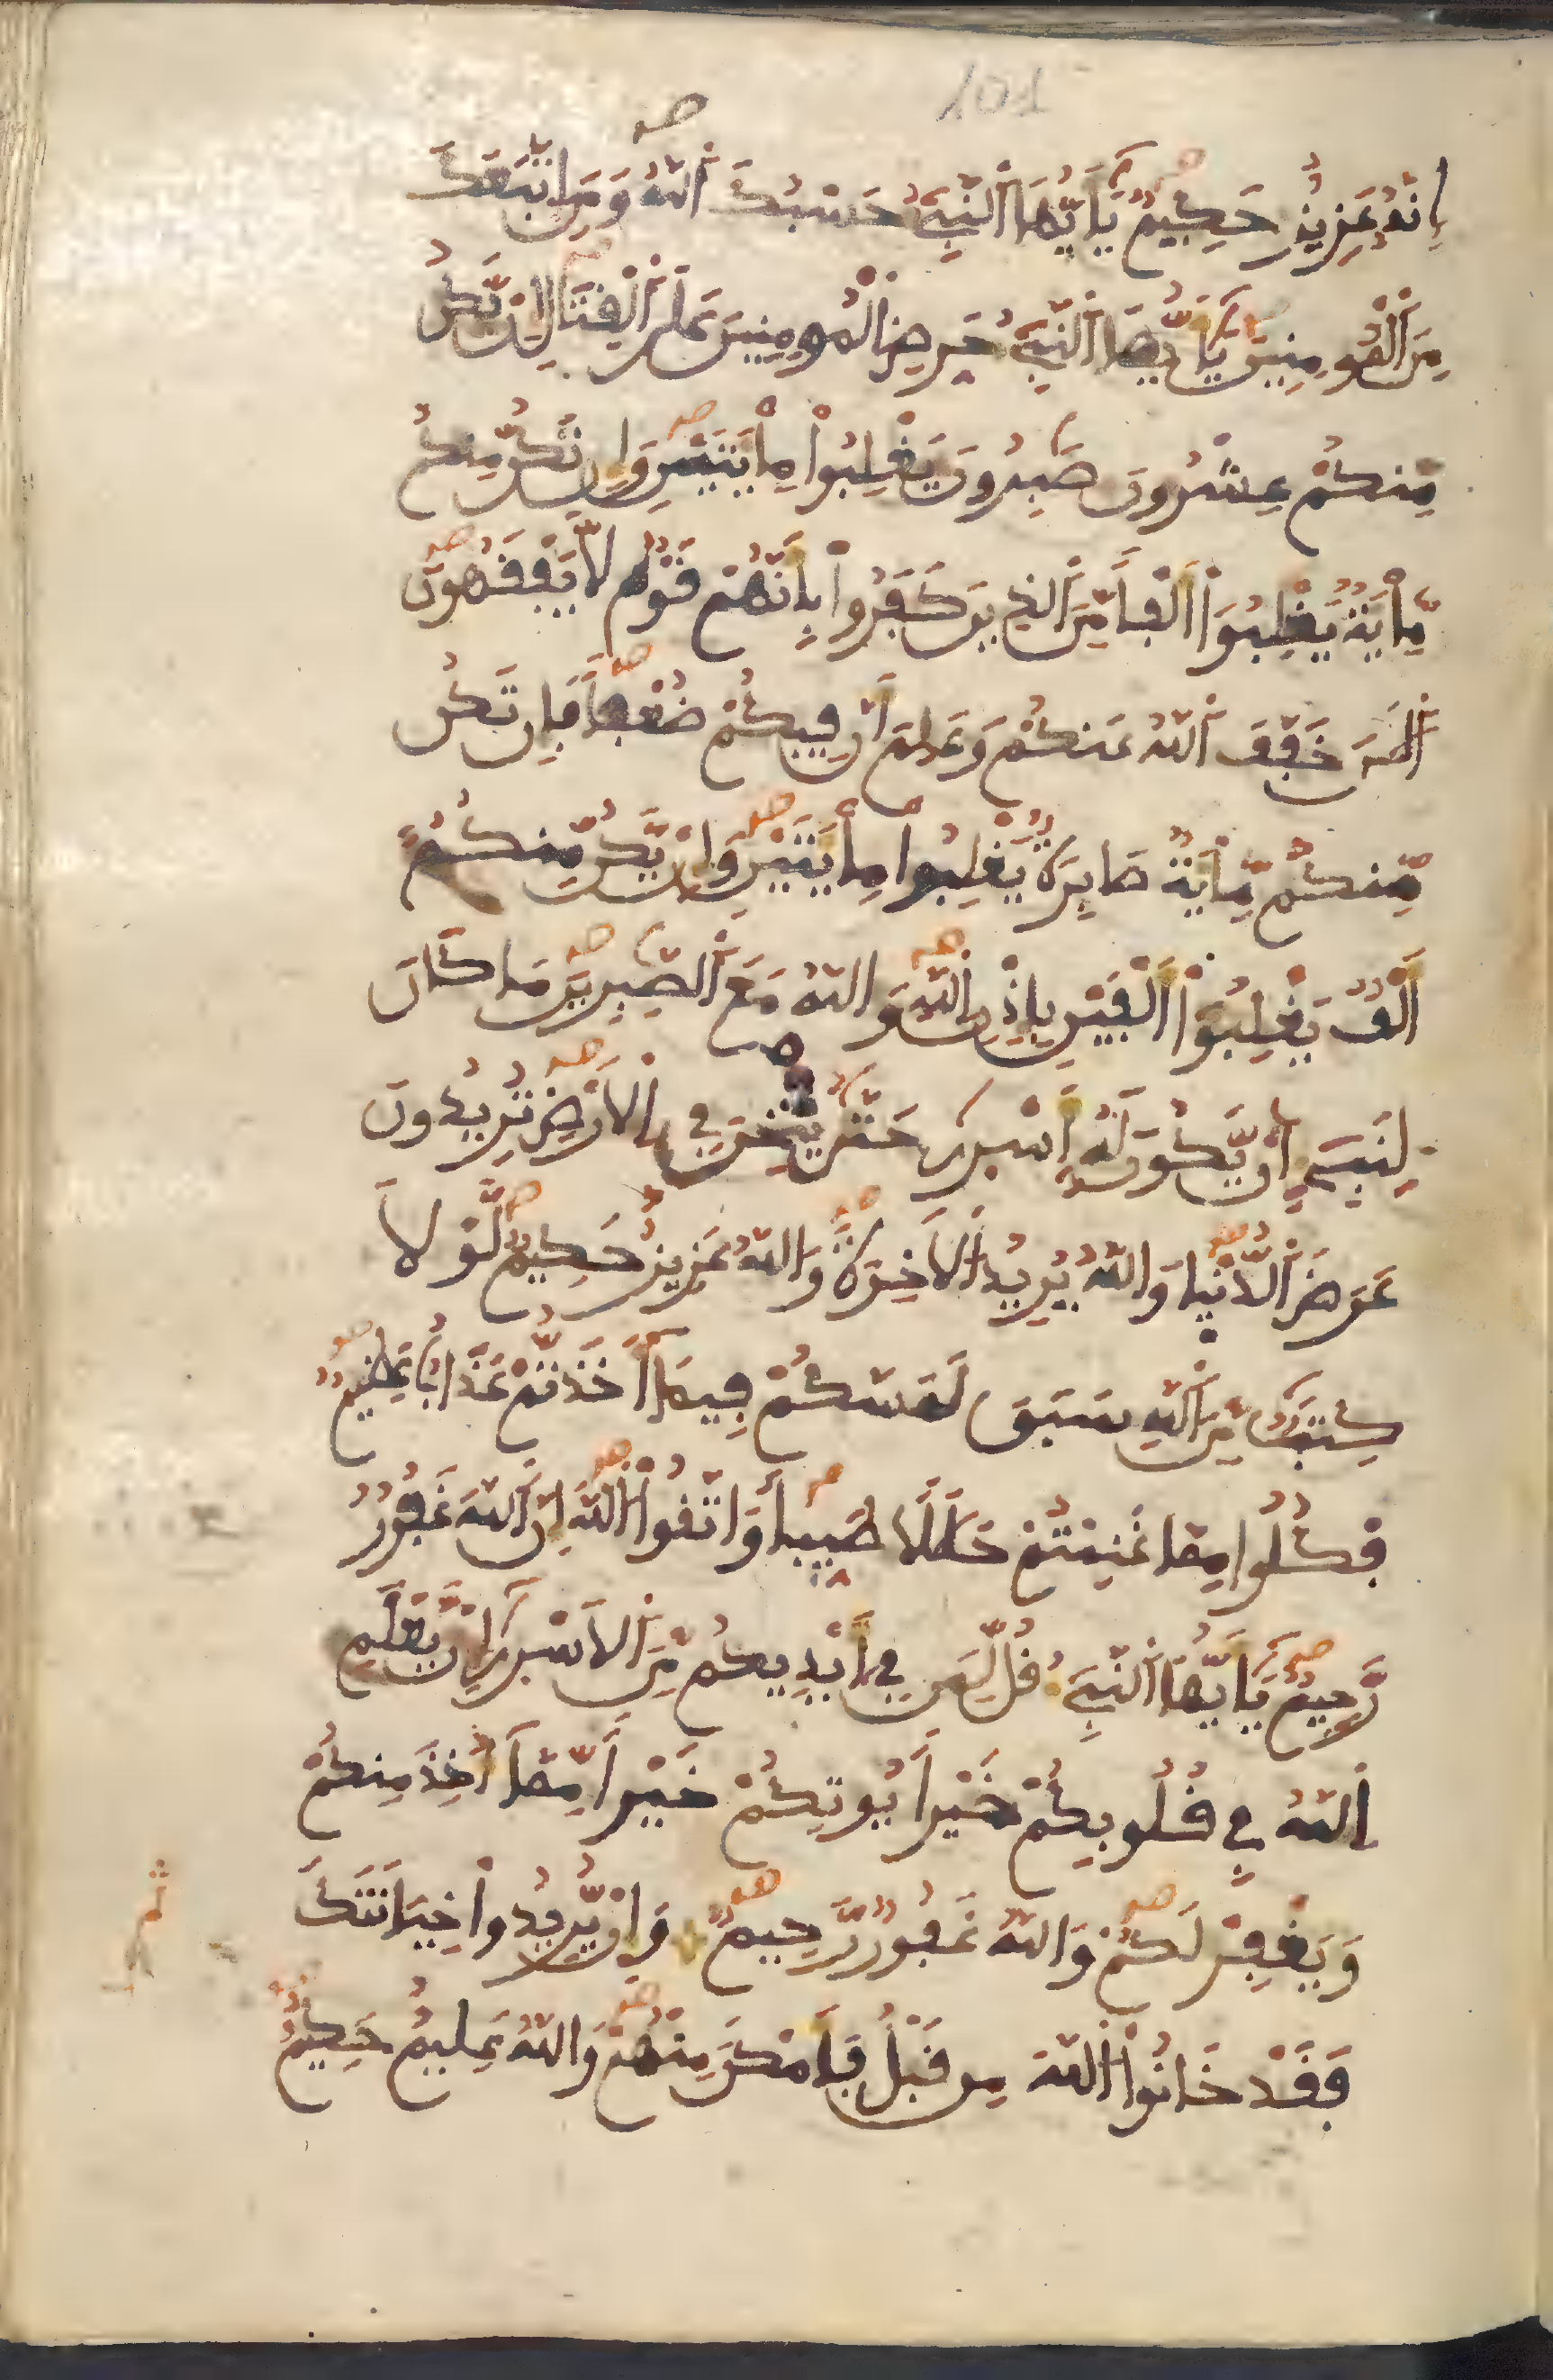 101
إِنَّهُ عَزِيزٌ حَكِيمٌ يَٰأَيُّهَا ٱلنَّبِيءُ حَسْبُكَ ٱللَّهُ وَمَنِ اِتَّبَعَكَ
مِنَ ٱلْمُومِنِينَ يَٰأَيُّهَا ٱلنَّبِيءُ حَرِّضِ ٱلْمُومِنِينَ عَلَى ٱلْقِتَالِ إِنْ يَّكُن
مِّنكُمْ عِشْرُونَ صَٰبِرُونَ يَغْلِبُواْ مِاْيَتَيْنِ وَإِن تَكُن مِّنكُم
مِّاْيَةٌ يَغْلِبُوٓاْ أَلْفاً مِّنَ ٱلذِينَ كَفَرُواْ بِأَنَّهُمْ قَوْمٌ لَّا يَفْقَهُونَ
ٱلَٰنَ خَفَّفَ ٱللَّهُ عَنكُمْ وَعَلِمَ أَنَّ فِيكُمْ ضُعْفاً فَإِن تَكُن
مِّنكُم مِّاْيَةٌ صَابِرَةٌ يَغْلِبُواْ مِاْيَتَيْنِ وَإِنْ يَّكُن مِّنكُمُ
أَلْفٌ يَغْلِبُوٓاْ أَلْفَيْنِ بِإِذْنِ ٱللَّهِ وَاللَّهُ مَعَ ٱلصَّٰبِرِينَ مَا كَانَ
لِنَبِيءٍ أَنْ يَّكُونَ لَهُ أَسْرَىٰ حَتَّىٰ يُثْخِنَ فِي ٱلْأَرْضِ تُرِيدُونَ
عَرَضَ ٱلدُّنْيَا وَاللَّهُ يُرِيدُ ٱلْأَخِرَةَ وَاللَّهُ عَزِيزٌ حَكِيمٌ لَّوْلَا
كِتَٰبٌ مِّنَ ٱللَّهِ سَبَقَ لَمَسَّكُمْ فِيمَآ أَخَذتُّمْ عَذَابٌ عَظِيمٌ
فَكُلُوا مِمَّا غَنِمْتُمْ حَلَٰلًا طَيِّباً وَاتَّقُواْ ٱللَّهَ إِنَّ ٱللَّهَ غَفُورٌ
رَّحِيمٌ يَٰأَيُّهَا ٱلنَّبِيءُ قُل لِّمَن فِي أَيْدِيكُم مِّنَ ٱلْأَسْرَىٰ إِنْ يَّعْلَمِ
ٱللَّهُ فِي قُلُوبِكُمْ خَيْراً يُوتِكُمْ خَيْراً مِّمَّآ أُخِذَ مِنكُمْ
وَيَغْفِرْ لَكُمْ وَاللَّهُ غَفُورٌ رَّحِيمٌ وَإِنْ يُّرِيدُواْ خِيَانَتَكَ
فَقَدْ خَانُواْ ٱللَّهَ مِن قَبْلُ فَأَمْكَنَ مِنْهُمْ وَاللَّهُ عَلِيمٌ حَكِيمٌ